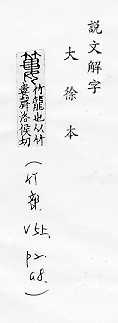 說文解字
大徐本
簍 竹籠也从竹
婁聲洛侯切
(竹部. V5上. p2. a8.)